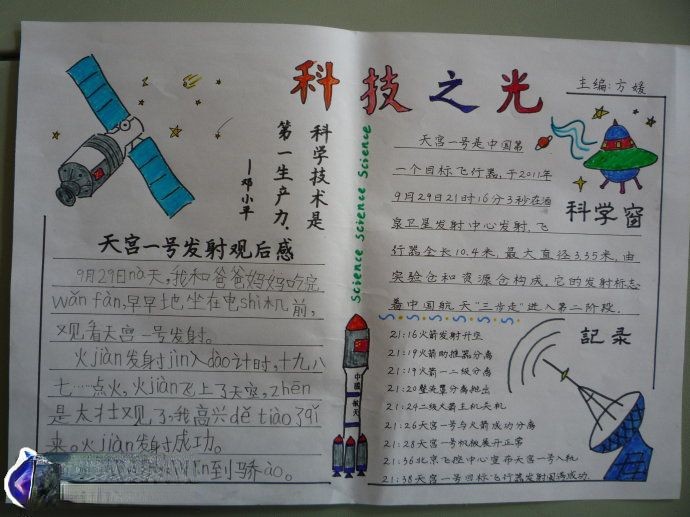 科技之光
主编:方媛
科学技术是
第一生产力.
—邓小平
天宫一号发射观后感
9月29日nà天,我和爸爸妈妈吃完
wǎn fàn,早早地坐在电shì机前,
观看天宫一号发射。
火jiàn发射jìn入dào计时,十九八
七……点火,火jiàn飞上了天空,zhēn
是太壮观了,我高兴dě tiào了qǐ
来。火jiàn发射成功。
到骄ào。
Science Science Science
中国航天
天宫一号是中国第
一个目标飞行器,于2011年
9月29日21时16分3秒在酒
泉卫星发射中心发射,飞
行器全长10.4米,最大直径3.35米,由
实验仓和资源仓构成,它的发射标志
着中国航天"三步走"进入第二阶段.
科学窗
記录
21:16火箭发射升空
21:19火箭助推器分离
21:19火箭一二级分离
21:20整流罩分离抛出
21:24二级火箭主机关机
21:26天宫一号与火箭成功分离
21:28天宫一号帆板展开正常
21:36北京飞控中心宣布天宫一号入轨
21:38天宫一号目标飞行器发射圆满成功.